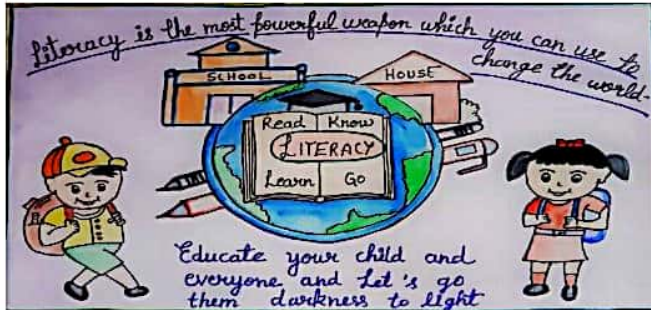 Literacy is the most powerful weapon which you can use to
change the world.
SCHOOL
HOUSE
Read Know
LITERACY
Learn Go
Educate your child and
everyone and Let's go
them darkness to light